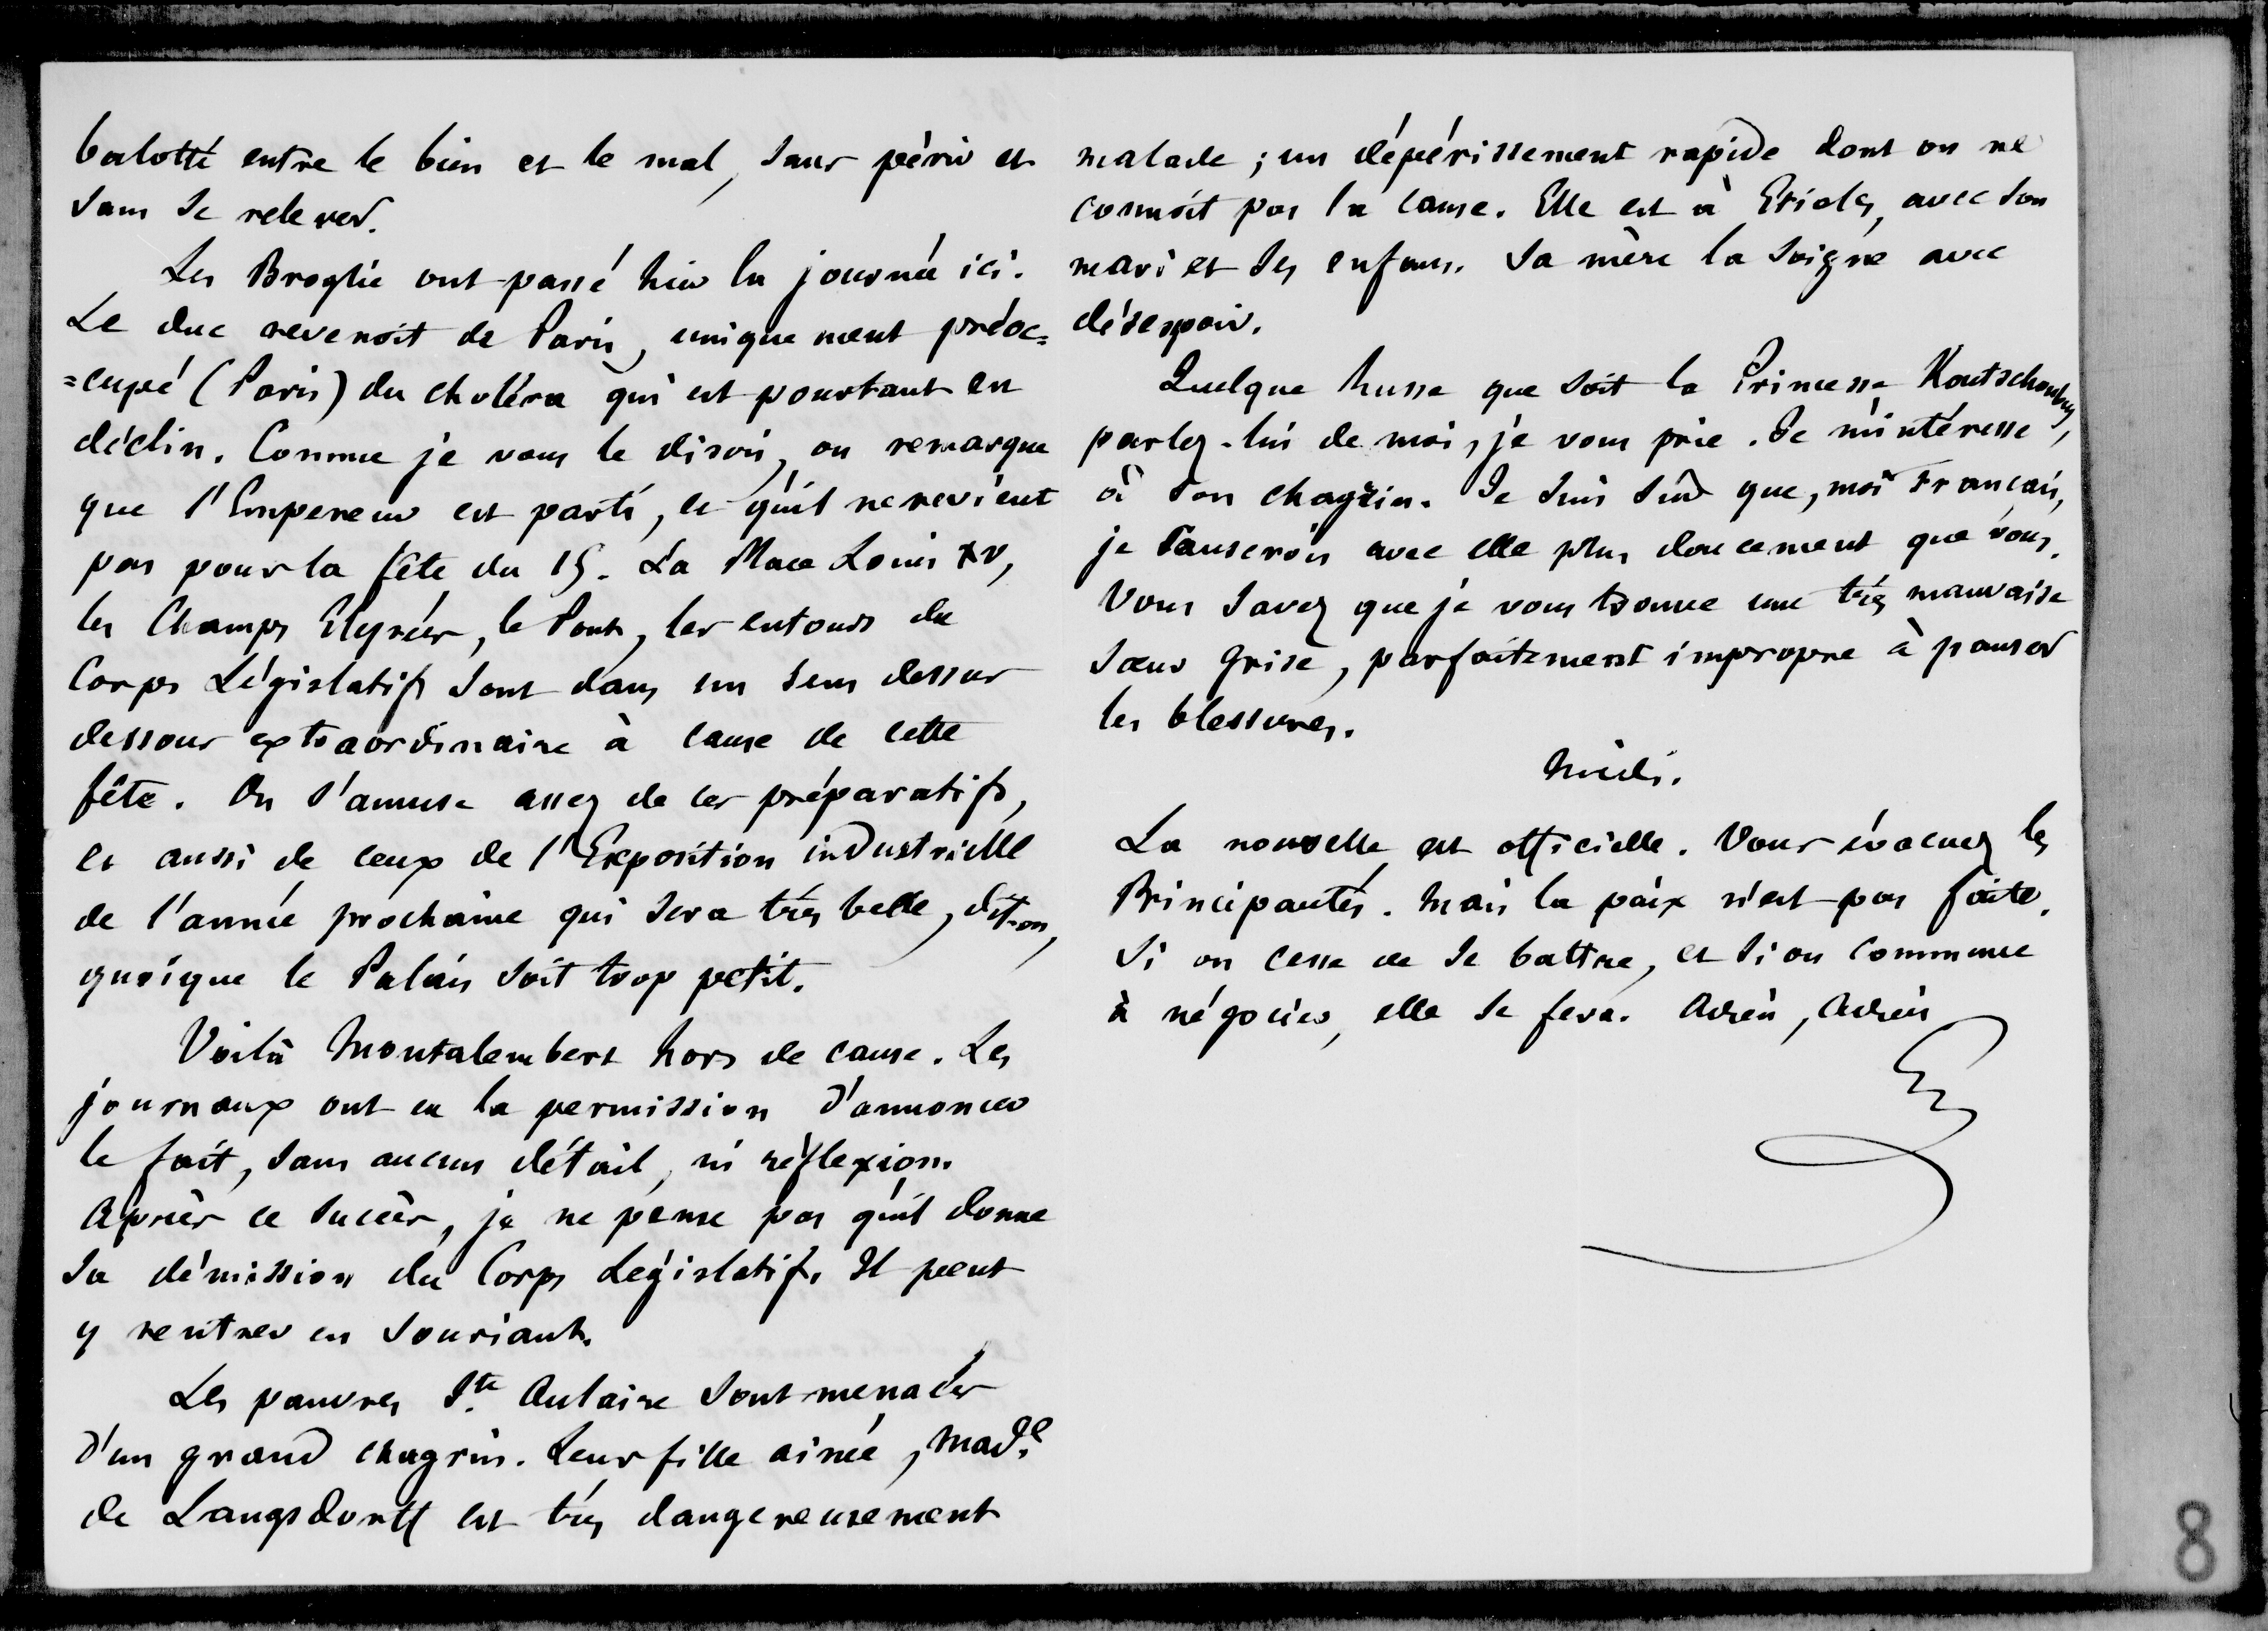 balotté entre le bien et le mal, sans périr et
sans se relever.
Les Broglie ont passé hier la journée ici.
Le duc revenoit de Paris, uniquement préoc=
=cupé (Paris) du choléra qui est pourtant en
déclin. Comme je vous le disois, on remarque
que l'Empereur est parti, et qu'il ne revient
pas pour la fête du 15. La Place Louis XV,
les Champs Elysées, le Pont, les entours du
Corps Législatif sont dans un sens dessus
dessous extraordinaire à cause de cette
fête. On s'amuse assez de ces préparatifs,
et aussi de ceux de l'Exposition industrielle
de l'année prochaine qui sera très belle, dit-on,
quoique le Palais soit trop petit.
Voilà Montalembert hors de cause. Les
journaux ont eu la permission d'annoncer
le fait, sans aucun détail, ni réflexion.
Après ce succès, je ne pense pas qu'il donne
sa démission du Corps Législatif. Il peut
y rentrer en souriant.
Les pauvres Ste Aulaire sont menacés
d'un grand chagrin. Leur fille ainée, Made
de Langsdorff est très dangereusement
malade ; un dépérissement rapide dont on ne
connoit pas la cause. Elle est à Etiolles, avec son
mari et ses enfans. Sa mère la soigne avec
désespoir.
Quelque russe que soit la Princesse Koutschoubey,
parlez-lui de moi, je vous prie. Je m'intéresse
à son chagrin. Je suis sûr que, moi Français,
je causerois avec elle plus doucement que vous.
Vous savez que je vous trouve une très mauvaise
sœur grise, parfaitement impropre à panser
les blessures.
Midi.
La nouvelle est officielle. Vous évacuez les
Principautés. Mais la paix n'est pas faite.
Si on cesse de se battre, et si on commence
à négocier, elle se fera. Adieu, Adieu